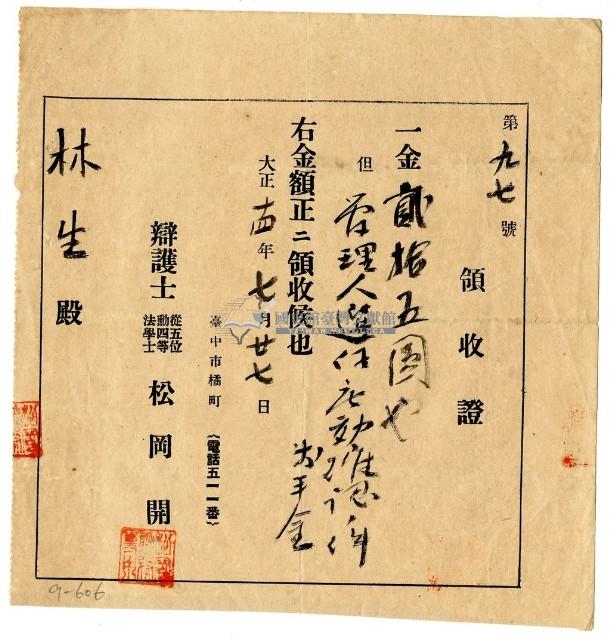 第九七號
領收證
一金貳拾五圓也
但管理人選任無効確認件
着手金
右金額正ニ領收候也
大正十四年七月廿七日
臺中市橘町（電話五一一番）
辯護士
從五位
勳四等
法學士
松岡開
林生殿
國史館臺灣文獻館
TAIWAN HISTORICA
9-606